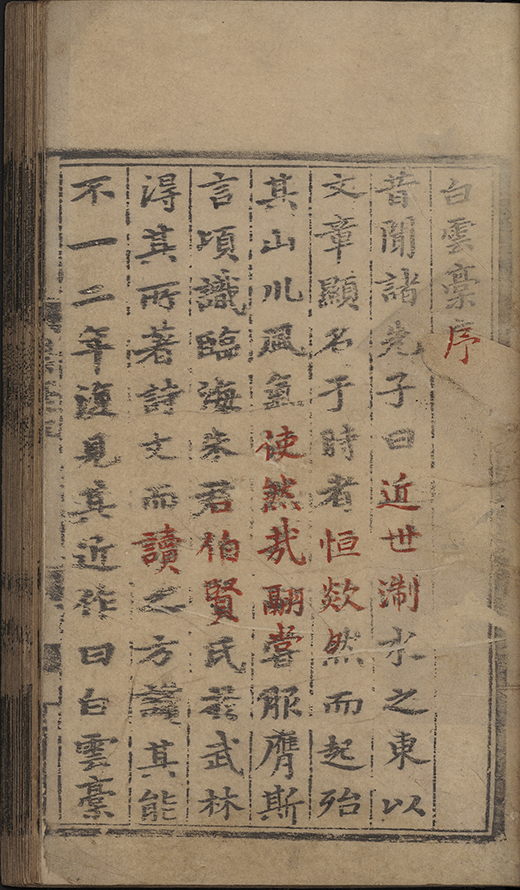 白雲稾序
昔聞諸先子曰近世淛水之東以
文章顯名于時者恒歘然而起殆
其山川風氣使然哉翮嘗服膺斯
言頃識臨海朱君伯賢氏於武林
淂其所著詩文而讀之方其能
不一二年復見其近作曰白雲稾